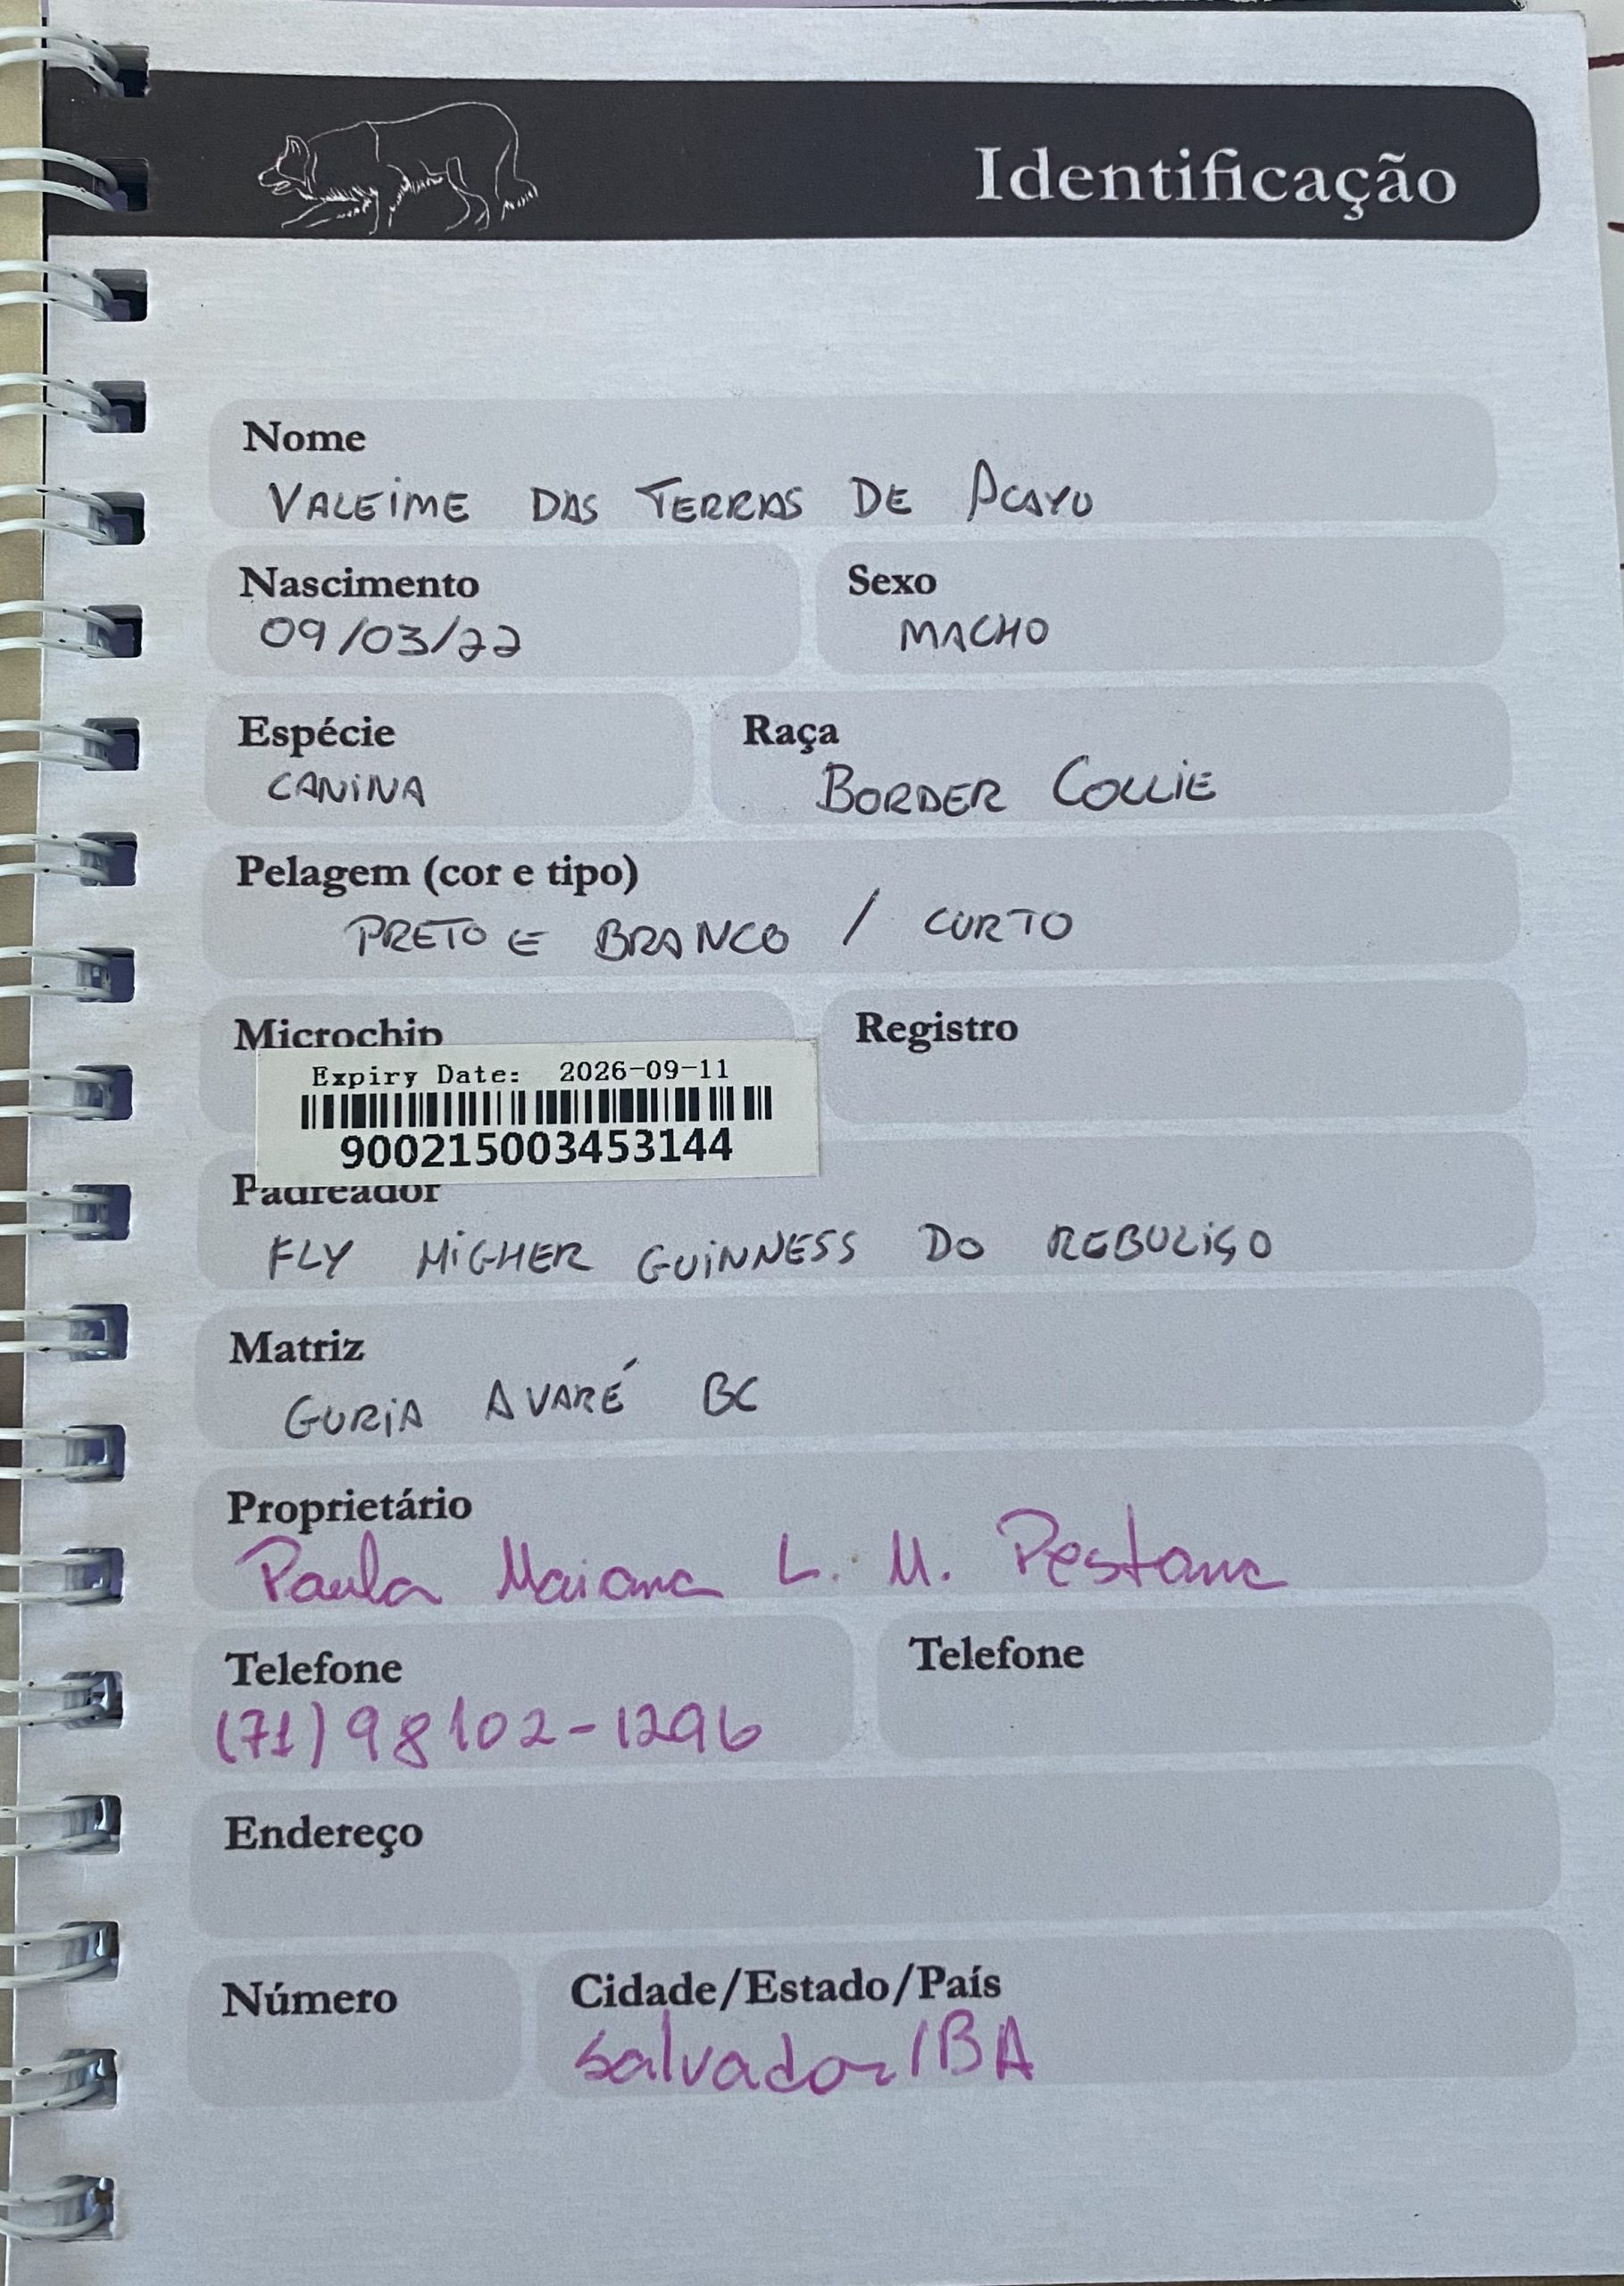 Identificação
Nome
VALEIME DAS TERRAS DE ACAYU
Nascimento
09/03/22
Sexo
MACHO
Espécie
CANINA
Raça
BORDER COLLIE
Pelagem (cor e tipo)
PRETO E BRANCO / CURTO
Microchip
Expiry Date: 2026-09-11
900215003453144
Registro
Padreador
FLY HIGHER GUINNESS DO REBULIÇO
Matriz
GURIA AVARÉ BC
Proprietário
Paula Maiana L. M. Pestana
Telefone
(71) 98102-1296
Telefone
Endereço
Número
Cidade/Estado/País
Salvador/BA